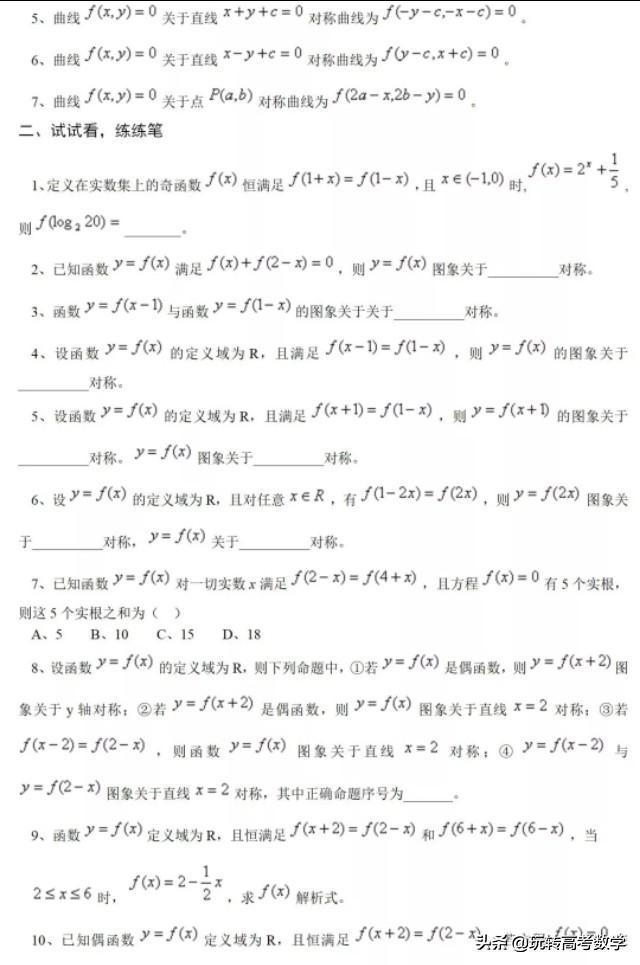 5、曲线 f(x,y)=0 关于直线 x+y+c=0 对称曲线为 f(-y-c,-x-c)=0 。
6、曲线 f(x,y)=0 关于直线 x-y+c=0 对称曲线为 f(y-c,x+c)=0 。
7、曲线 f(x,y)=0 关于点 P(a,b) 对称曲线为 f(2a-x,2b-y)=0 。
二、试试看，练练笔
1、定义在实数集上的奇函数 f(x) 恒满足 f(1+x)=f(1-x) ，且 x∈(-1,0) 时, f(x)=2^x+1/5 ，
则 f(log₂20)=________。
2、已知函数 y=f(x) 满足 f(x)+f(2-x)=0 ，则 y=f(x) 图象关于__________对称。
3、函数 y=f(x-1) 与函数 y=f(1-x) 的图象关于关于__________对称。
4、设函数 y=f(x) 的定义域为 R，且满足 f(x-1)=f(1-x) ，则 y=f(x) 的图象关于
__________对称。
5、设函数 y=f(x) 的定义域为 R，且满足 f(x+1)=f(1-x) ，则 y=f(x+1) 的图象关于
__________对称。 y=f(x) 图象关于__________对称。
6、设 y=f(x) 的定义域为 R，且对任意 x∈R ，有 f(1-2x)=f(2x) ，则 y=f(2x) 图象关
于__________对称， y=f(x) 关于__________对称。
7、已知函数 y=f(x) 对一切实数 x 满足 f(2-x)=f(4+x) ，且方程 f(x)=0 有 5 个实根，
则这 5 个实根之和为（ ）
A、5 B、10 C、15 D、18
8、设函数 y=f(x) 的定义域为 R，则下列命题中，①若 y=f(x) 是偶函数，则 y=f(x+2) 图
象关于 y 轴对称；②若 y=f(x+2) 是偶函数，则 y=f(x) 图象关于直线 x=2 对称；③若
f(x-2)=f(2-x) ，则函数 y=f(x) 图象关于直线 x=2 对称；④ y=f(x-2) 与
y=f(2-x) 图象关于直线 x=2 对称，其中正确命题序号为_______。
9、函数 y=f(x) 定义域为 R，且恒满足 f(x+2)=f(2-x) 和 f(6+x)=f(6-x) ，当
2≤x≤6 时， f(x)=2-1/2x ，求 f(x) 解析式。
10、已知偶函数 y=f(x) 定义域为 R，且恒满足 f(x+2)=f(2-x)
头条 @玩转高考数学